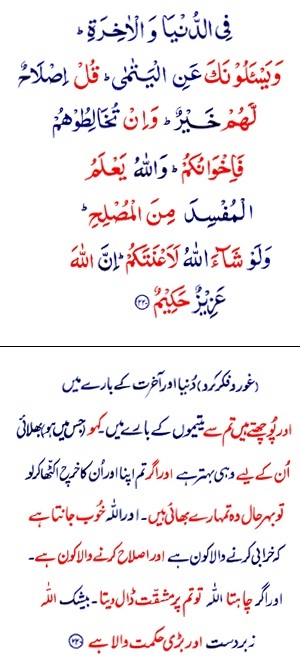 فِى الدُّنْيَا وَ الْاٰخِرَةِ ؕ
وَيَسْـَٔلُوْنَكَ عَنِ الْيَتٰمٰى ؕ قُلْ اِصْلَاحٌ
لَّهُمْ خَيْرٌ ؕ وَاِنْ تُخَالِطُوْهُمْ
فَاِخْوَانُكُمْ ؕ وَاللّٰهُ يَعْلَمُ
الْمُفْسِدَ مِنَ الْمُصْلِحِ ؕ
وَلَوْ شَآءَ اللّٰهُ لَاَعْنَتَكُمْ ؕ اِنَّ اللّٰهَ
عَزِيْزٌ حَكِيْمٌ ﴿۲۲۰﴾
(غور و فکر کرو) دُنیا اور آخرت کے بارے میں
اور پُوچھتے ہیں تم سے یتیموں کے بارے میں۔ کہو (جس میں ہو) بھلائی
اُن کے لیے وہی بہتر ہے اور اگر تم اپنا اور اُن کا خرچ اکٹھا کر لو
تو بہرحال وہ تمہارے بھائی ہیں۔ اور اللہ خُوب جانتا ہے
کہ خرابی کرنے والا کون ہے اور اصلاح کرنے والا کون ہے۔
اور اگر چاہتا اللہ تو تم پر مشقّت ڈال دیتا۔ بیشک اللہ
زبردست اور بڑی حکمت والا ہے ﴿۲۲۰﴾